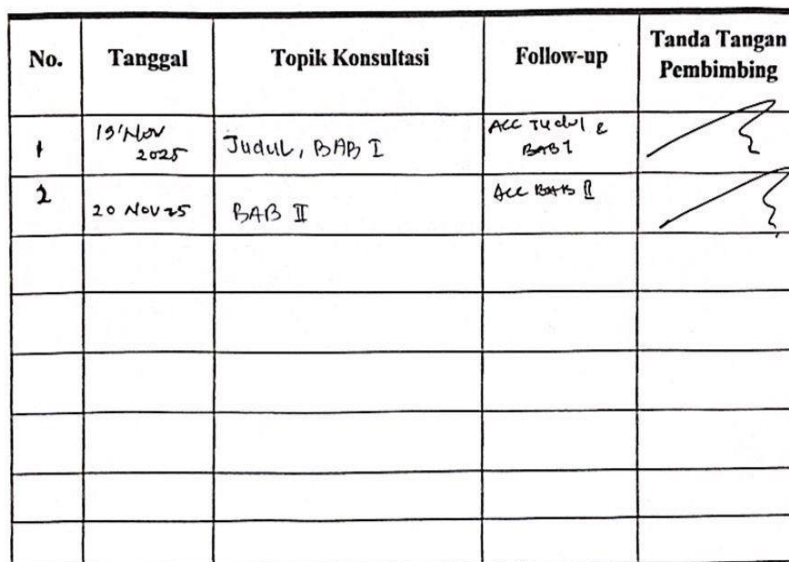 No.
Tanggal
Topik Konsultasi
Follow-up
Tanda Tangan
Pembimbing
1
19 Nov
2025
Judul, BAB I
ACC Judul &
BAB I
2
20 NOV 25
BAB II
ACC BAB II